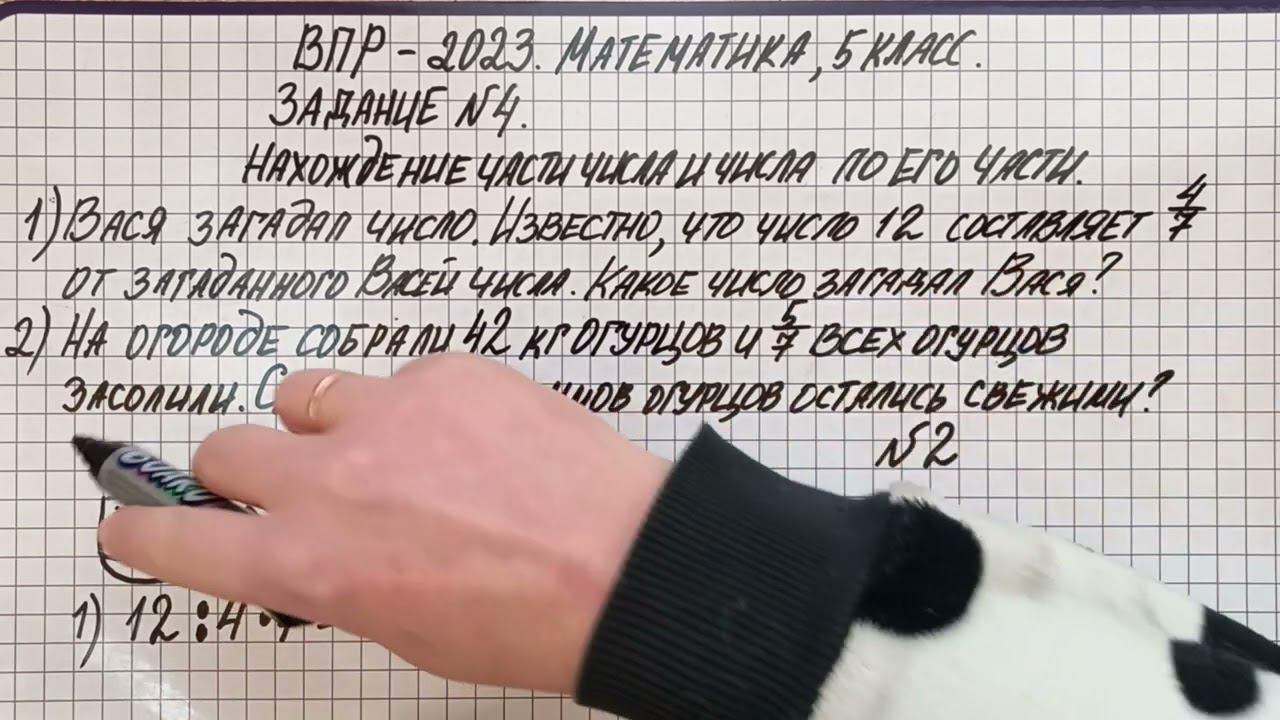 ВПР - 2023. МАТЕМАТИКА, 5 КЛАСС.
ЗАДАНИЕ №4.
НАХОЖДЕНИЕ ЧАСТИ ЧИСЛА И ЧИСЛА ПО ЕГО ЧАСТИ.
1) ВАСЯ ЗАГАДАЛ ЧИСЛО. ИЗВЕСТНО, ЧТО ЧИСЛО 12 СОСТАВЛЯЕТ 4/7
ОТ ЗАГАДАННОГО ВАСЕЙ ЧИСЛА. КАКОЕ ЧИСЛО ЗАГАДАЛ ВАСЯ?
2) НА ОГОРОДЕ СОБРАЛИ 42 КГ ОГУРЦОВ И 5/7 ВСЕХ ОГУРЦОВ
ЗАСОЛИЛИ. ОГУРЦОВ ОСТАЛИСЬ СВЕЖИМИ?
№2
1) 12 : 4 ·